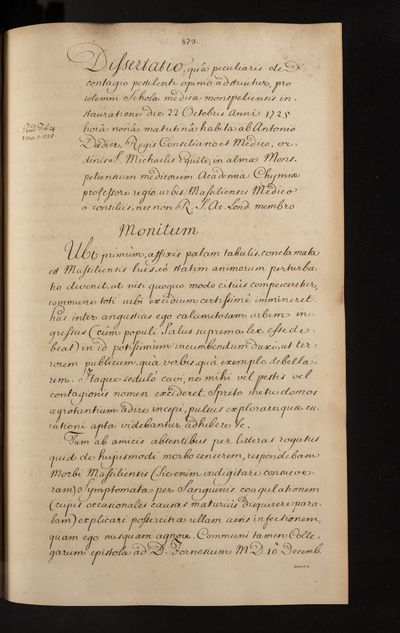 879.
Dissertatio, quâ peculiaris de
contagio pestilenti opinio adstruitur, pro
solemni Scholæ medicæ monspeliensis in-
stauratione die 22 Octobris Anni 1725
horâ nonâ matutinâ habita ab Antonio
Deidier, Regis Consiliario et Medico, or-
dinis S. Michaelis Equite, in alma Mons-
peliensium medicorum Academia Chymiæ
professore regio, urbis Massiliensis Medico
a consiliis, nec non R. S. Lond membro
Monitum.
Ubi primùm, affixis palam tabulis, conclamata
est Massiliensis lues, eò statim animorum perturba-
tio devenit, ut nisi quoquo modo citiùs compesceretur,
commune toti urbi excidium certissimè immineret.
has inter angustias ego calamitosam urbem in-
gressus (cùm populi Salus suprema lex esse de-
beat) in id potissimùm incumbendum duxi, ut ter-
rorem publicum, quà verbis, quà exemplo debella-
rem. Itaque sedulò cavi, ne mihi vel pestis vel
contagionis nomen excideret, spreto metu domos
ægrotantium adire incepi, pulsus explorare, quæ cu-
rationi apta videbantur adhibere &c.
Tum ab amicis absentibus per litteras rogatus
quid de hujusmodi morbo censerem, respondebam
Morbi Massiliensis (sic enim indigitare consueve-
ram) Symptomata per Sanguinis coagulationem
(cujus occasionales causas maturiùs disquirere para-
bam) explicari posse citra ullam aëris infectionem,
quam ego nusquam agnovi. Communi tamen Colle-
garum epistola ad D. Fornesium M D 10 Decemb.